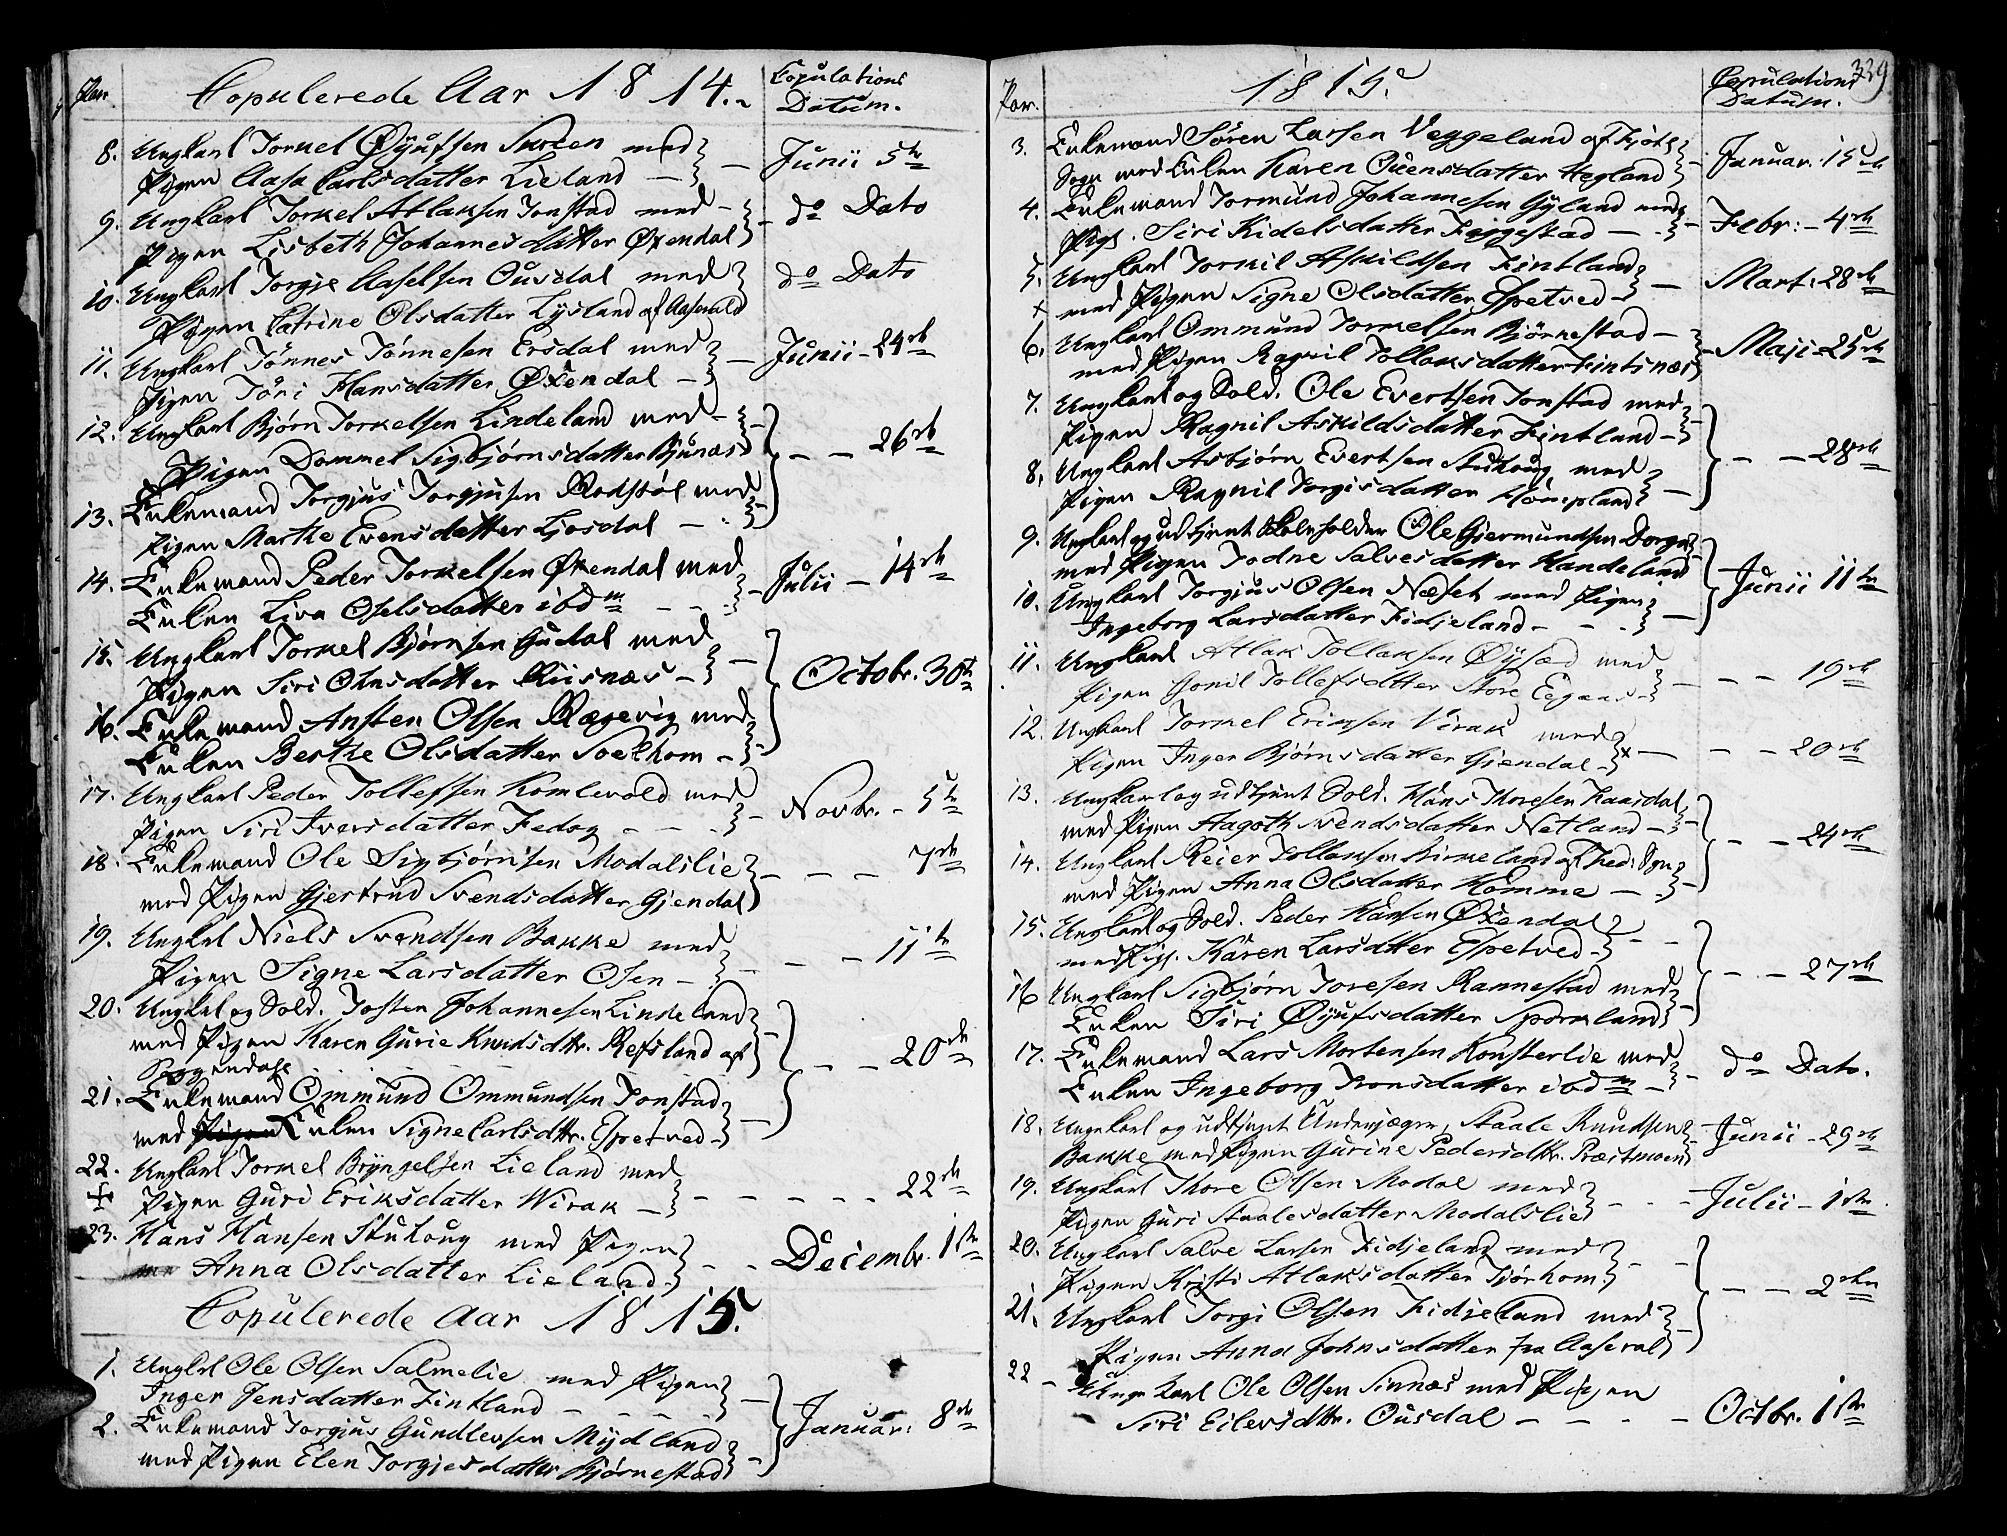 Par. Copulerede Aar 1814. Copulations Datum.
8. Ungkarl Torkel Øyufsen med
Pigen Aasa Carlsdatter Lieland — Junii 5te
9. Ungkarl Torkel Atlaksen Tonstad med
Pigen Lisbeth Johannesdatter Øxendal do Dato
10. Ungkarl Torgje Aaselsen Ousdal med do Dato
Pigen Catrine Olsdatter Lysland af Aaserald
11. Ungkarl Tønnes Tønnesen Ersdal med — Junii - 24de
Pigen Tøri Hansdatter Øxendal —
12. Ungkarl Bjørn Torkelsen Lindeland med
Pigen Dommel Sigbjørnsdatter — — 26de
13. Enkemand Torgjus Torgjusen Rodstøl med
Pigen Marthe Evensdatter Ljosdal —
14. Enkemand Peder Torkelsen Øxendal med Julii - 14de
Enken Liva Oselsdatter ibdm
15. Ungkarl Torkel Bjørnsen Gudal med
Pigen Siri Ohnsdatter Risnæs — Octobr. 30te
16. Enkemand Ansten Olsen Rægevig med
Enken Berthe Olsdatter Soelhom —
17. Ungkarl Peder Tollefsen Komlevold med
Pigen Siri Iversdatter Fedog — Novbr. - 5te
18. Enkemand Ole Sigbjørnsen Modalslie — 7de
med Pigen Gjertrud Svendsdatter Gjendal
19. Ungkl Niels Svendsen Bakke med — 11te
Pigen Signe Larsdatter Osen —
20. Ungkl og Sold. Josten Johannesen Lindeland
med Pigen Karen Gurie Knudsdtr. Refsland af — 20de
Soggendahl
21. Enkemand Ommund Ommundsen Tonstad
med Pigen Enken Signe Carlsdtr. Espetved
22. Ungkarl Torkel Bryngelsen Lieland med
Pigen Guri Eriksdatter Wirak — 22de
23. Hans Hansen Stuhoug med Pigen
Anna Olsdatter Lieland. — Decembr. 1ste
Copulerede Aar 1815.
1. Ungkl Ole Olsen Salmelie med Pigen
Inger Jensdatter Fintland —
2. Enkemand Torgjus Gundlevsen Mydland Januar: 8de
med Pigen Elen Torgjesdatter Bjørnestad
Par. 1815. Copulations Datum. 339
3. Enkemand Søren Larsen Veggeland af
Sogn med Enken Karen Ouensdatter Hegland Januar: 15de
4. Enkemand Tormund Johannesen Gyland med
Pige. Siri Kidelsdatter Figgestad — Febr: - 4de
5. Ungkarl Torkil Askildsen Fintland
+ med Pigen Signe Olsdatter Espetved — Mart: 28de
6. Ungkarl Ommund Torkelsen Bjørnestad —
med Pigen Ragnil Tollaksdatter Fintsnæs Maji 25de
7. Ungkarl og Sold. Ole Evertsen Tonstad med
Pigen Ragnil Askildsdatter Fintland — — 28de
8. Ungkarl Asbjørn Evertsen Stuhoug med
Pigen Ragnil Torgisdatter Hompland —
9. Ungkarl og udtjent Skoleholder Ole Gjermundsen Dorge
med Pigen Todne Salvesdatter Handeland
10. Ungkarl Torgjus Olsen Næset med Pigen Junii 11te
Ingeborg Larsdatter Fidjeland —
11. Ungkarl Atlak Tollaksen Øysæd med
Pigen Gonil Tollefsdatter Store Eegaas — 19de
12. Ungkarl Torkel Eriksen Virak med
Pigen Inger Bjørnsdatter Gjendal — 20de
13. Ungkarl og udtjent Sold. Hans Thoresen Haasdal
med Pigen Aagoth Svendsdatter Netland —
14. Ungkarl Reier Tollaksen Birkeland af Fed: Sgn — 24de
med Pigen Anna Olsdatter Homme —
15. Ungkarl og Sold. Peder Hansen Øxendal
med Pig. Karen Larsdtter Espetved — 27de
16 Ungkarl Sigbjørn Toresen Rannestad med
Enken Siri Øyufsdatter Sporkland
17. Enkemand Lars Mortensen Konsterlie med
Enken Ingeborg Tronsdatter ibdm — do Dato.
18. Ungekarl og udtjent Underjæger, Staale Knudsen
Bakke med Pigen Gurine Pedersdtr. Præstmoen Junii - 29de
19. Ungkarl Thore Olsen Modal med
Pigen Guri Staalesdatter Modalslie Julii - 1ste
20. Ungkarl Salve Larsen Fidjeland med
Pigen Kristi Atlaksdatter Tjørhom — 2den
21. Ungkarl Torgi Olsen Fidjeland med
Pigen Anna Johnsdatter fra Aaseral
22 — Unge Karl Ole Olsen Sinnæs med Pigen
Siri Eilersdtr. Ousdal — Octbr. 1ste